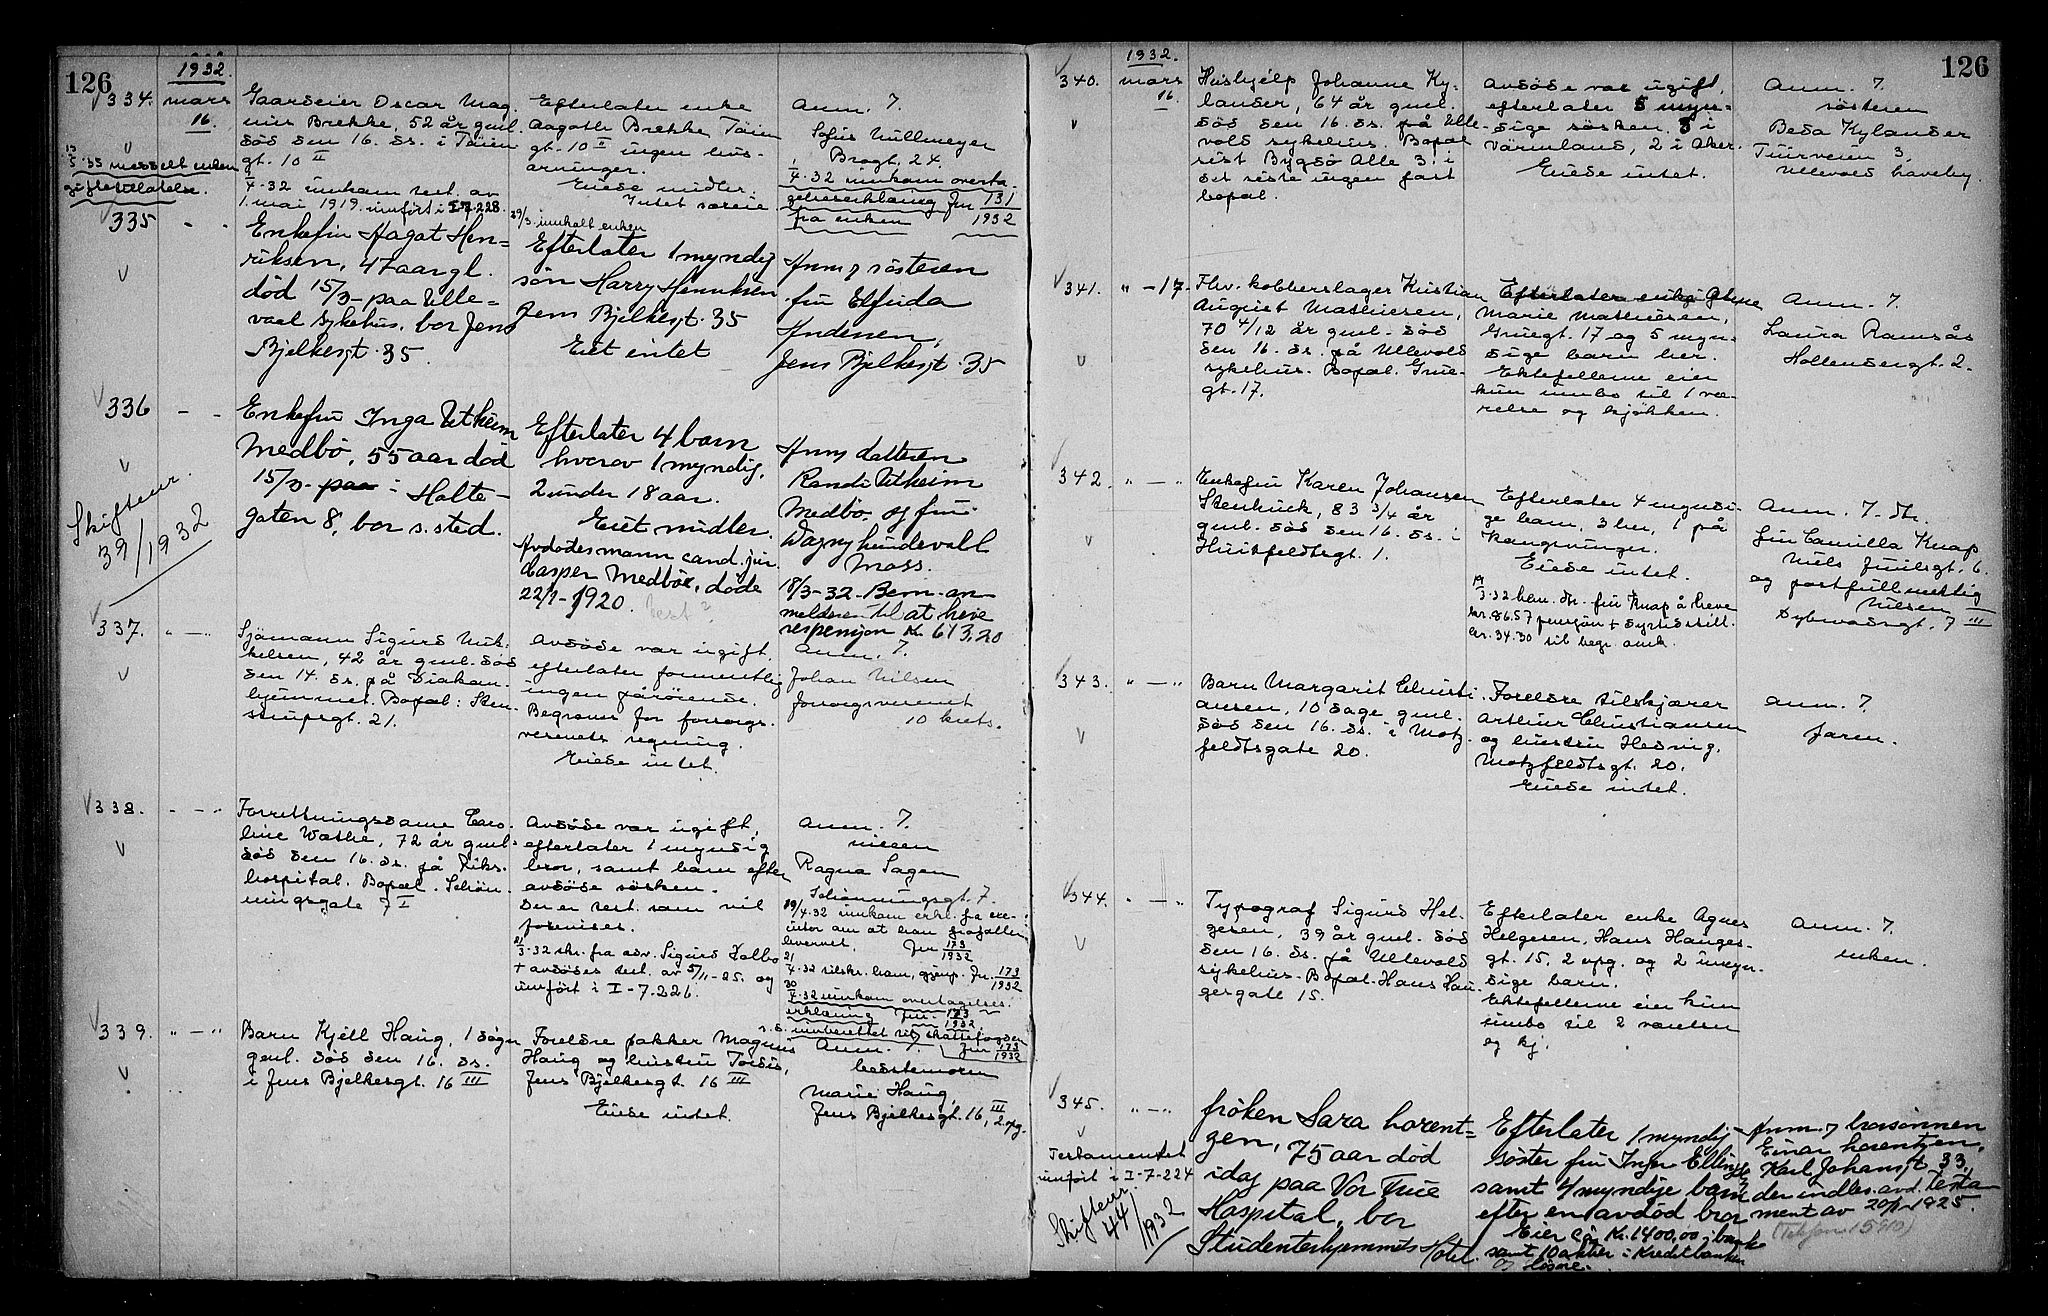 126
1932.
334. mars
16.
Gaardeier Oscar Mag-
nus Brekke, 52 år gml.
död den 16. ds. i Töien
gt. 10 II
4.32 innkom test. av
1. mai 1919. innfört i I.7.228.
Efterlater enke
Aagoth Brekke Töien
gt. 10 II ingen livs-
arvinger.
Eiede midler.
Intet særeie.
29/3. innkalt enken
Anm. 7.
Sofus Mullmeyer
Brogt. 24.
4.32 innkom overta-
gelseserklæring Jnr 131
1932
fra enken
5.35 meddelt enken
giftetillatelse.
335 - -
Enkefru Aagot Hen=
riksen, 47 aar gl.
död 15/3 - paa Ulle=
vaal sykehus, bor Jens
Bjelkesgt. 35.
Efterlater 1 myndig
sön Harry Henriksen
Jens Bjelkesgt. 35
Eiet intet
Anm 7 søsteren
fru Elfrida
Andersen,
Jens Bjelkesgt. 35
336 - -
Enkefru Inga Utheim
Medbö, 55 aar död
15/3 - paa i Holte-
gaten 8, bor s. sted.
Efterlater 4 barn
hvorav 1 myndig,
2 under 18 aar.
Eiet midler.
Avdödes mann cand. jur.
Casper Medböe, döde
22/1 - 1920. Test?
Anm 7 datteren
Randi Utheim
Medbö og fru
Dagny Lundevall
Moss.
18/3-32 - Bem. an-
melderen til at heve
respensjon Kr. 613,20
Skifteur.
39/1932
337. " — "
Sjömann Sigurd Mik-
kelsen, 42 år gml. död
den 14. ds. på Diakon-
hjemmet. Bopæl: Sten-
strupsgt. 21.
Avdöde var ugift,
efterlater formentlig
ingen pårörende.
Begraves for forsorgs-
vesenets regning.
Eiede intet.
Anm. 7.
Johan Nilsen
Forsorgsvesenet
10 krets.
338. - — "
Forretningsdame Caro-
line Wathe, 72 år gml.
död den 16. ds. på Riks-
hospital. Bopæl. Schön-
ningsgate 7 I
Avdöde var ugift,
efterlater 1 myndig
bror, samt barn efter
avdöde sösken.
Der er test. som vil
forevises.
3.32 skr. fra adv. Sigurd Kolbo
+ avdödes test. av 5/11-25. og
innfört i I-7.226.
Anm. 7.
niesen
Ragna Sagen
Schönningsgt. 7.
19/4.32 innkom erkl. fra exe-
kutor om at han frafaller
hvervet. Jnr 173
1932
21
4.32 tilskr. ham, gjenp. Jnr 173
1932
30
4.32 innkom overtagelses-
erklæring Jnr. 173
1932.
s.d. innberettet til skattefogden
Jnr 173
1932
339. " — "
Barn Kjell Haug, 1 dögn
gml. död den 16. ds.
i Jens Bjelkesgt. 16 III
Foreldre pakker Magnus
Haug og hustru Tordis,
Jens Bjelkesgt. 16 III
Eiede intet.
Anm. 7.
bestemoren
Marie Haug,
Jens Bjelkesgt. 16 III, 2 opg.
126
1932.
340. mars
16.
Hushjelp Johanne Ky-
lander, 64 år gml.
död den 16. ds. på Ulle-
volds sykehus. Bopæl
sist Bygdö Alle 3. i
det siste ingen fast
bopæl.
Avdöde var ugift,
efterlater 5 myn-
dige sösken. 3 i
Värmland, 2 i Aker.
Eiede intet.
Anm. 7.
sösteren
Beda Kylander
Tuirveien 3,
Ullevold haveby.
341. " — 17.
Fhv. kobberslager Kristian
August Mathiesen,
70 4/12 år gml. död
den 16. ds. på Ullevold
sykehus. Bopæl. Grue-
gt. 17.
Efterlater enke
Marie Mathiesen,
Gruegt. 17 og 5 myn-
dige barn her.
Ektefellene eier
kun innbo til 1 væ-
relse og kjökken.
Anm. 7.
Laura Ramsås
Hollendergt. 2.
342. " — "
Enkefru Karen Johansen
Stenhuck, 83 3/4 år
gml. död den 16. ds. i
Huitfeldtsgt. 1.
Efterlater 4 myndi-
ge barn, 3 her, 1 på
Kongsvinger.
Eiede intet.
3.32 bem. dtr. fru Knap å heve
kr. 86.57 pensjon + dyrtidstill.
kr. 34.30 til begr. omk.
Anm. 7. dtr.
fru Camilla Knap
Niels Juelsgt. 6.
og postfullmektig
Nilsen
Dybwadsgt. 7 III
343. " — "
Barn Margarit Christi-
ansen, 10 dage gml.
död den 16. ds. i Motz-
feldtsgate 20.
Foreldre tilskjærer
Arthur Christiansen
og hustru Hedvig,
Motzfeldtsgt. 20.
Eiede intet.
Anm. 7
faren.
344. " — "
Typograf Sigurd Hel-
gesen, 39 år gml. död
den 16. ds. på Ullevold
sykehus. Bopæl. Hans Hau-
gesgate 15.
Efterlater enke Agnes
Helgesen, Hans Hauges-
gt. 15, 2 opg. og 2 umyn-
dige barn.
Ektefellene eier kun
innbo til 2 værelser
og kj.
Anm. 7.
enken.
345. " — "
Testamentet
innfört i I-7-224
Skifteur
44/1932
fröken Sara Lorent=
zen, 75 aar död
idag paa Vor Frue
Hospital, bor
Studenterhjemmets Hotel.
Efterlater 1 myndig
söster fru Inger Ellingse
samt 4 myndige barn
efter en avdöd bror
Eier ca Kr. 1400,00 i bank
samt 10 aktier i Kreditbanken
og lösöre.
Anm. 7 brorsönnen
Einar Lorentzen,
Karl Johansgt 33,
der indlev. avd. testa
ment av 1925.